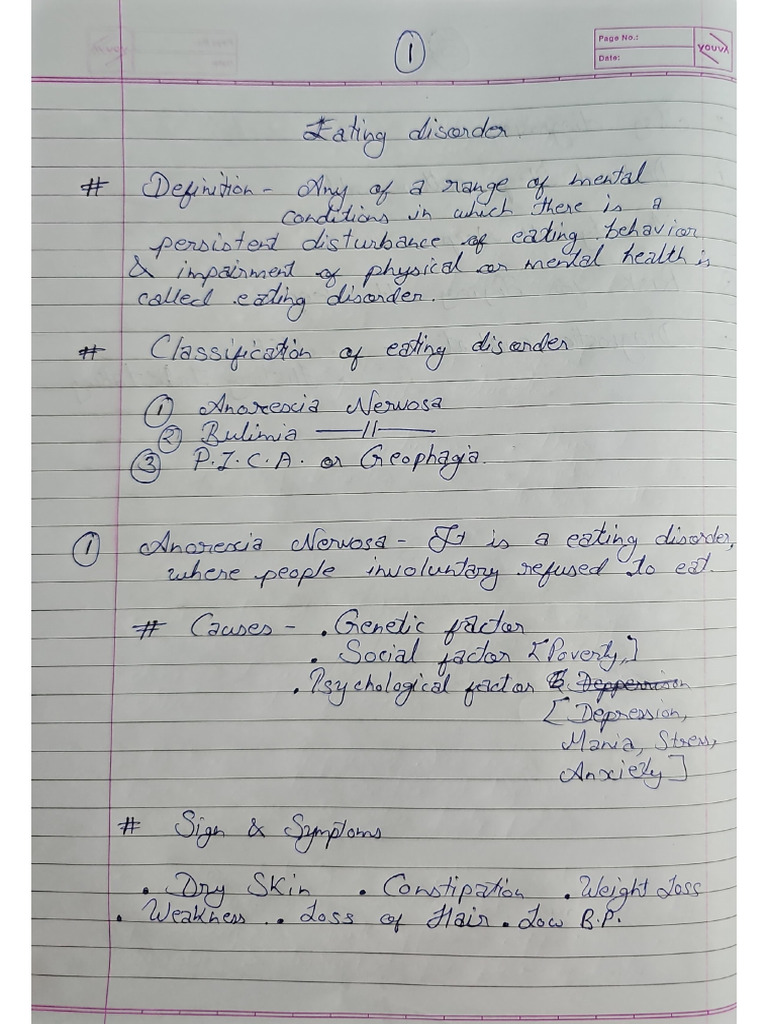 1
Page No.:
Date:
youva
Eating disorder
# Definition - Any of a range of mental
conditions in which there is a
persistent disturbance of eating behavior
& impairment of physical or mental health is
called eating disorder.
# Classification of eating disorder
① Anorexia Nervosa
② Bulimia —〃—
③ P.I.C.A. or Geophagia.
① Anorexia Nervosa - It is a eating disorder,
where people involuntary refused to eat.
# Causes - • Genetic factor
• Social factor [Poverty,]
• Psychological factor
[Depression,
Mania, Stress,
Anxiety]
# Sign & Symptoms
• Dry Skin • Constipation • Weight Loss
• Weakness • Loss of Hair • Low B.P.